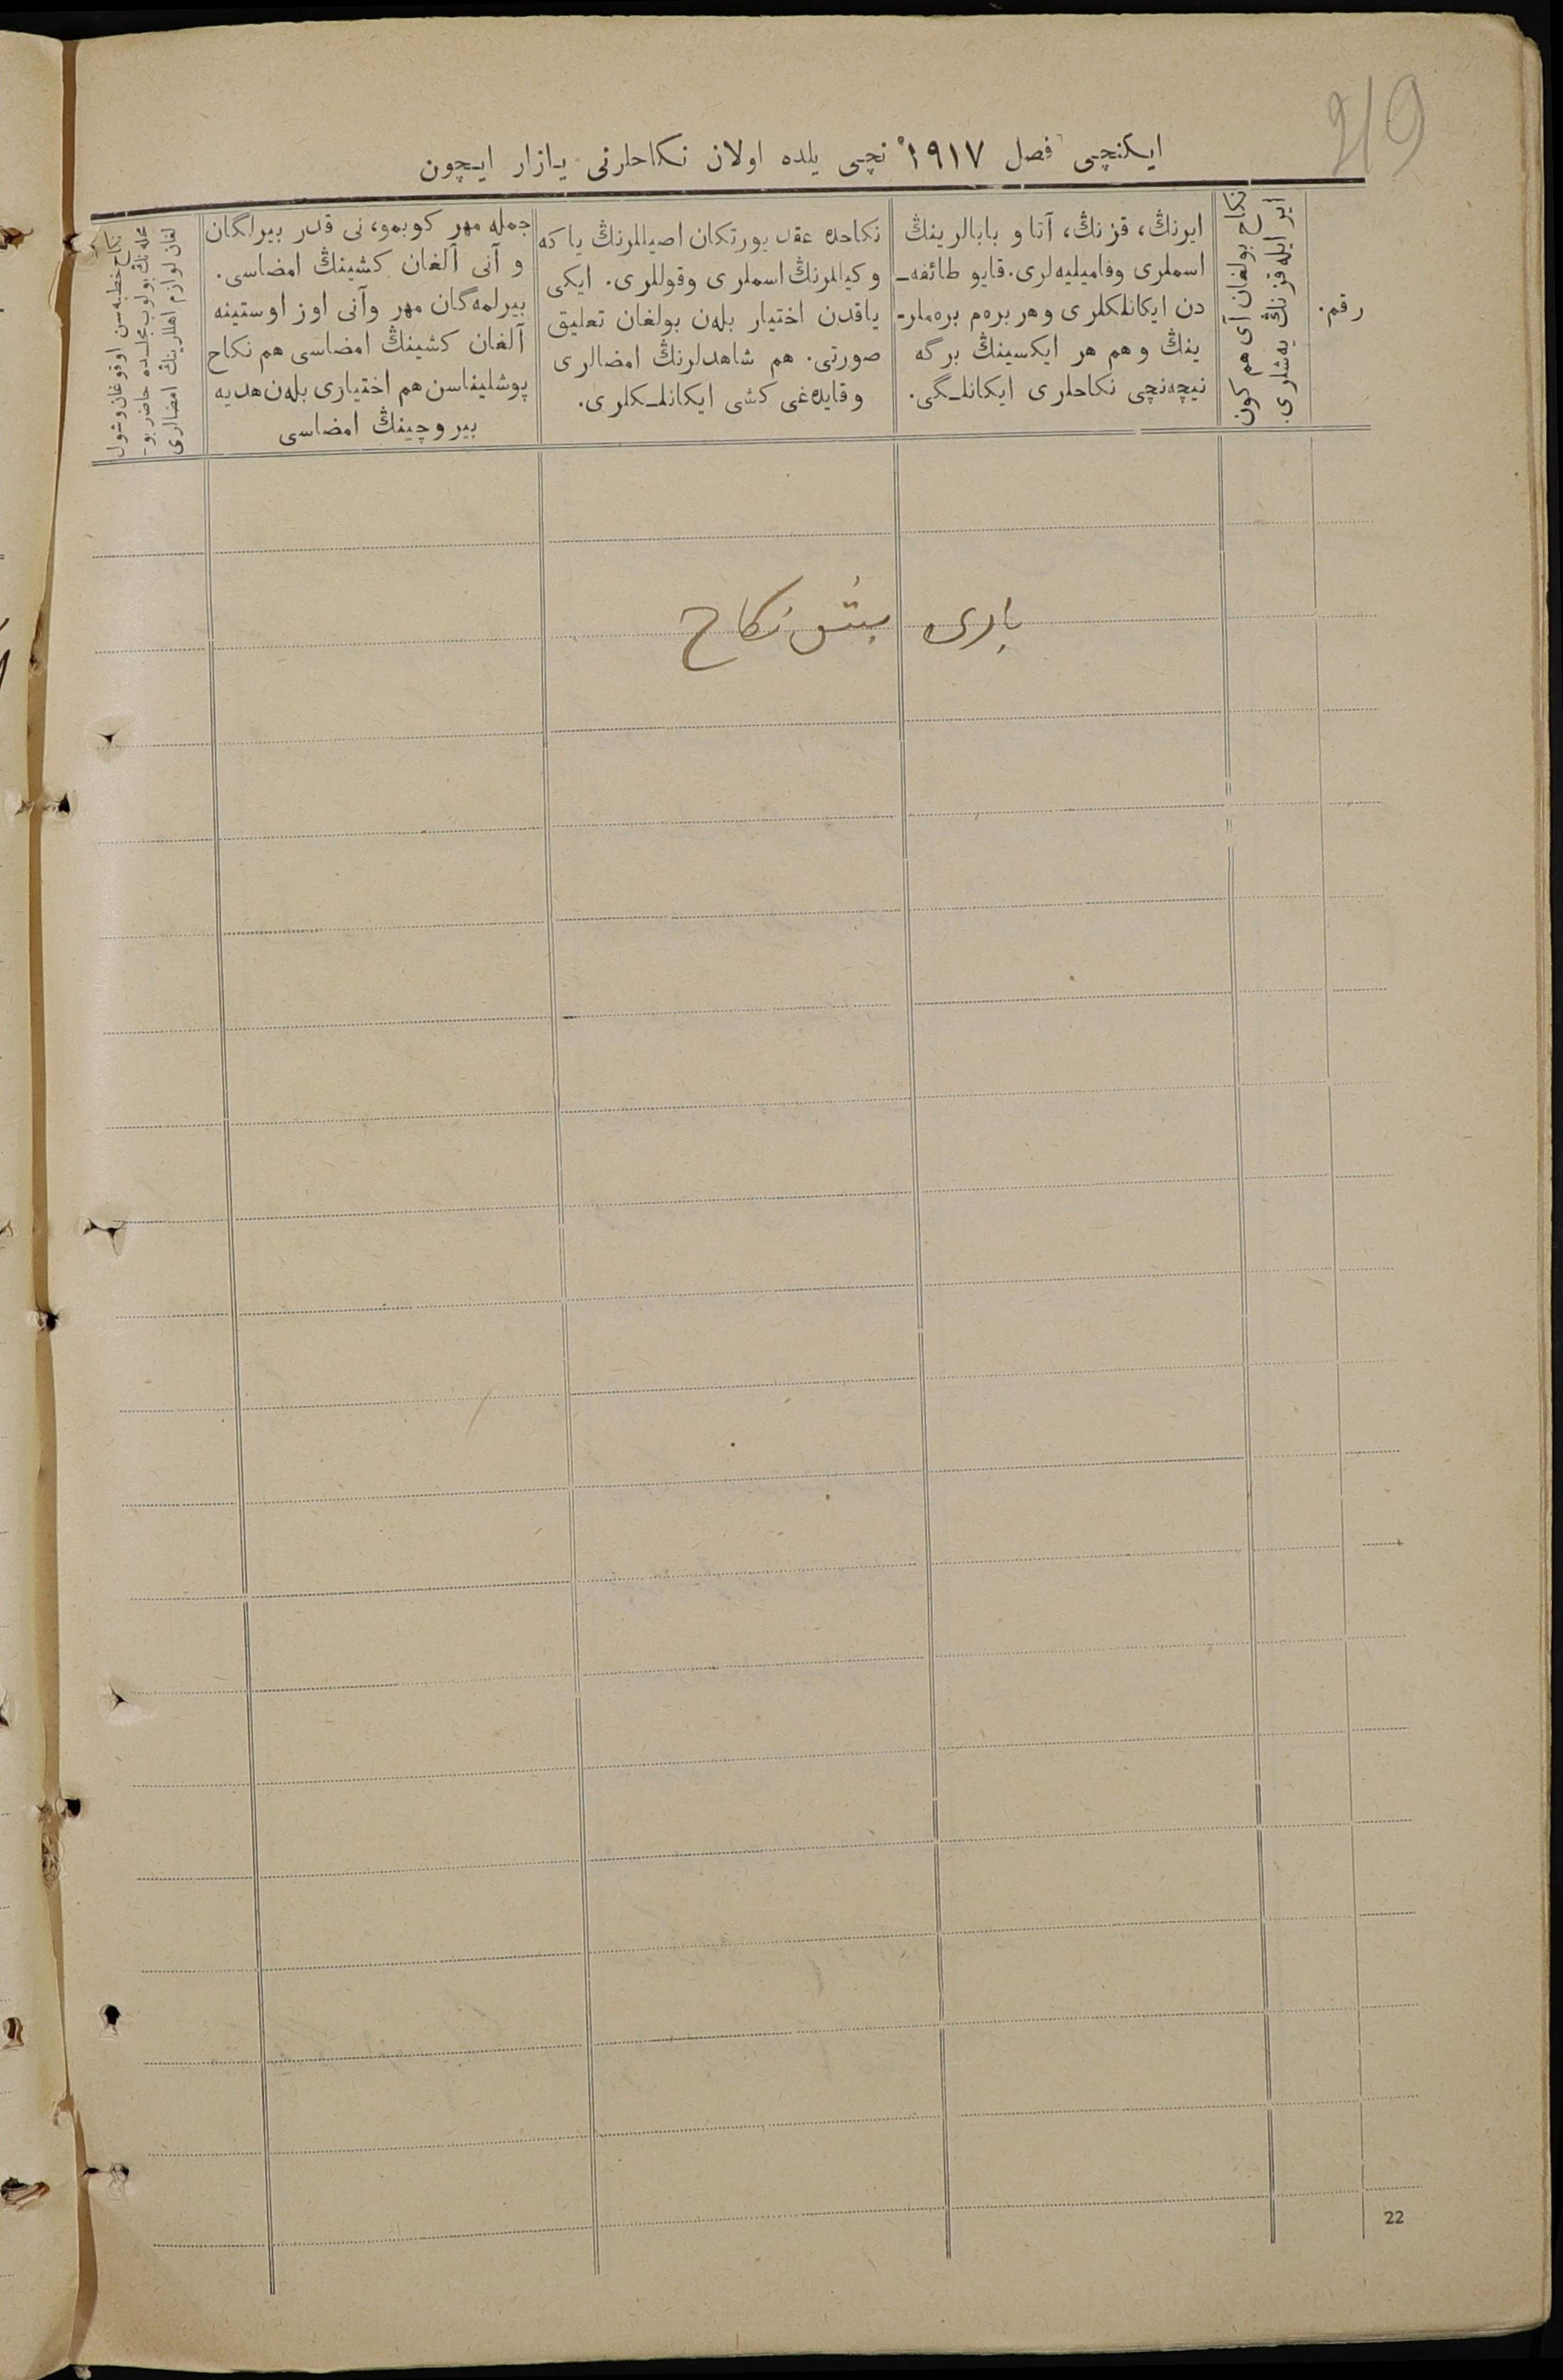 219
ایکنچی فصل ۱۹۱۷ نچی یلده اولان نکاحلرنی یازار ایچون
رقم.
نکاح بولغان آی هم کون
ایر ایله قزنڭ یه‌شلری.
ایرنڭ، قزنڭ، آتا و بابالرینڭ
اسملری وفامیلیه‌لری. قایو طائفه‌ـ
دن ایکانلکلری وهر بره‌م بره‌ملرـ
ینڭ وهم هر ایکسینڭ برگه
نیچه‌نچی نکاحلری ایکانلـگی.
نکاحده عقد یورتکان اصیللرنڭ یا که
وکیللرنڭ اسملری وقوللری. ایکی
یاقدن اختیار بله‌ن بولغان تعلیق
صورتی. هم شاهدلرنڭ امضالری
وقایده‌غی کشی ایکانلـکلری.
جمله مهر کوبمو، نی قدر بیرلگان
و آنی آلغان کشینڭ امضاسی.
بیرلمه‌گان مهر وآنی اوز اوستینه
آلغان کشینڭ امضاسی هم نکاح
پوشلیناسن هم اختیاری بله‌ن هدیه
بیروچینڭ امضاسی
نکاح خطبه‌سن اوقوغان وشول
محله‌نڭ بولوب مجلسده حاضر بوـ
لغان لوازم اهللرینڭ امضالری
باری بش نکاح
22